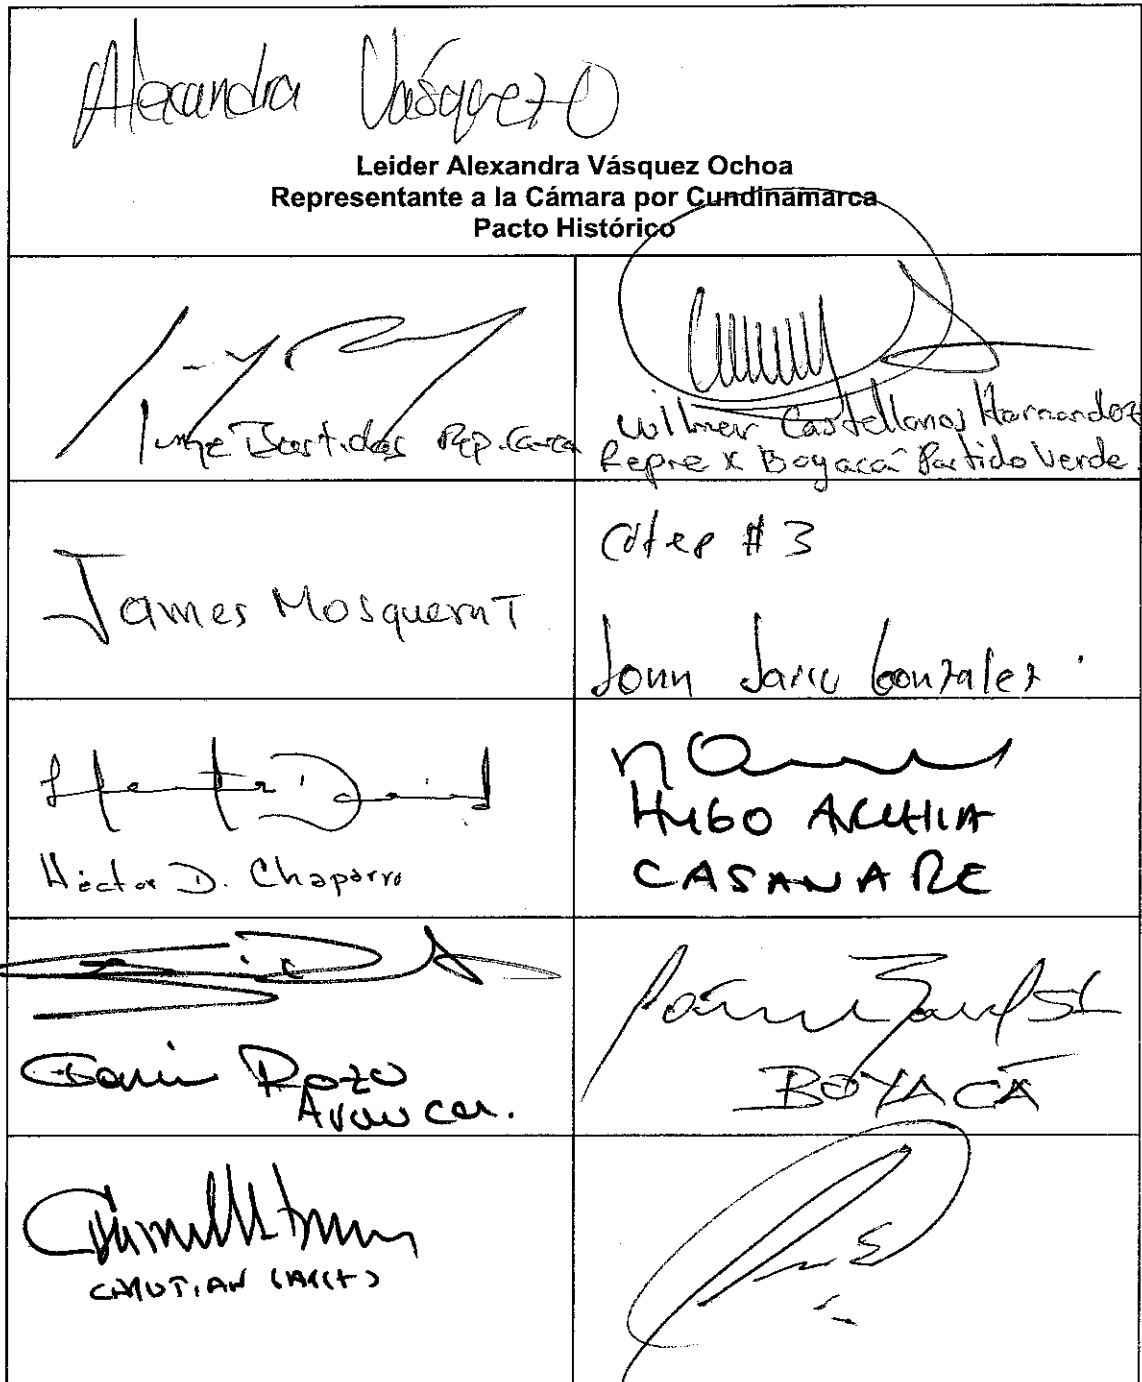 Alexandra Vásquez O
Leider Alexandra Vásquez Ochoa
Representante a la Cámara por Cundinamarca
Pacto Histórico
Jorge Bastidas Rep. Cauca
Wilmer Castellanos Hernandez
Repre x Boyacá Partido Verde.
James Mosquera T
Citrep # 3
John Jairo Gonzalez
Hector David
Héctor D. Chaparro
HUGO ARCHILA
CASANARE
Germán Rozo
Arauca.
BOYACÁ